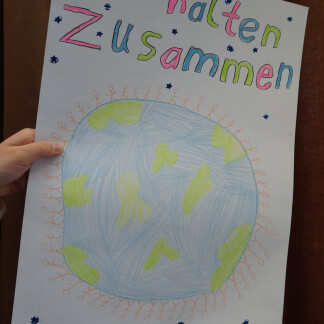 halten
Zusammen